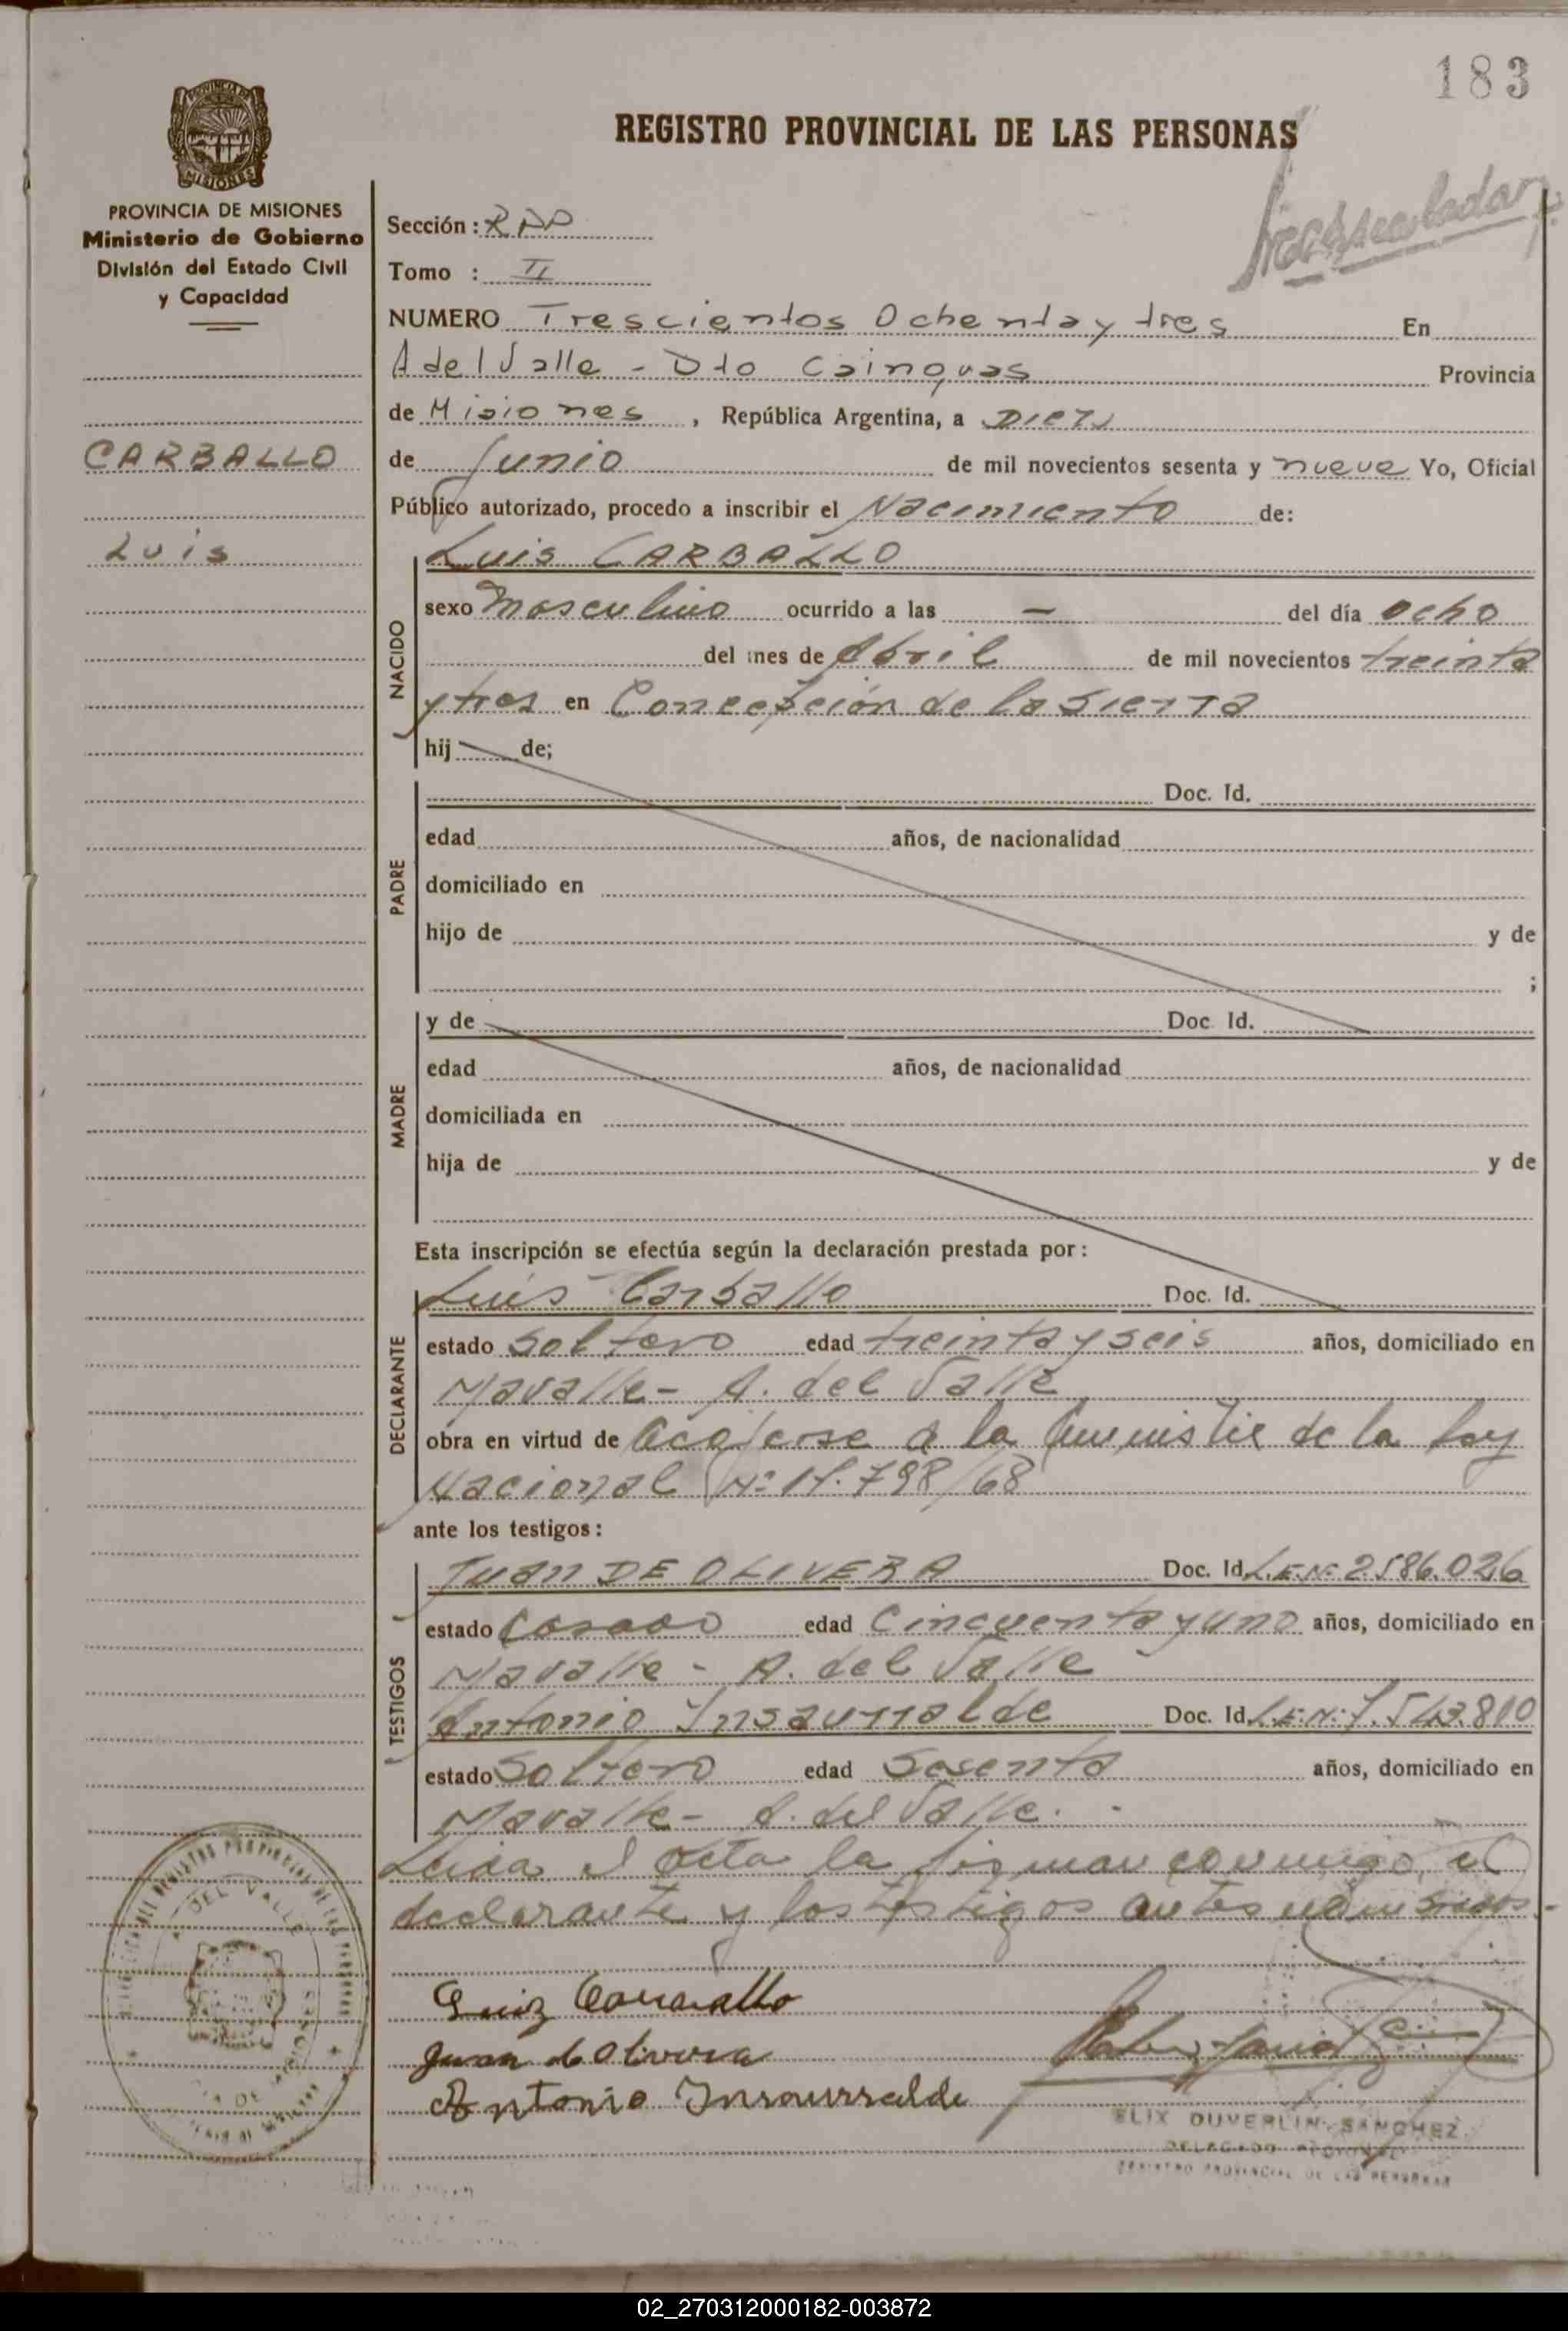 183
REGISTRO PROVINCIAL DE LAS PERSONAS
PROVINCIA DE MISIONES
Ministerio de Gobierno
División del Estado Civil
y Capacidad
CARBALLO
Luis
Sección :
Tomo : II
NUMERO Trescientos Ochenta y tres En
A del Valle - Dto Cainguas Provincia
de Misiones , República Argentina, a Diez
de Junio de mil novecientos sesenta y nueve Yo, Oficial
Público autorizado, procedo a inscribir el Nacimiento de:
NACIDO
Luis CARBALLO
sexo Masculino ocurrido a las — del día ocho
del mes de Abril de mil novecientos treinta
y tres en Concepción de la Sierra
hij de;
PADRE
Doc. Id.
edad años, de nacionalidad
domiciliado en
hijo de y de
;
MADRE
y de Doc. Id.
edad años, de nacionalidad
domiciliada en
hija de y de
Esta inscripción se efectúa según la declaración prestada por :
DECLARANTE
Luis Carballo Doc. Id.
estado Soltero edad treinta y seis años, domiciliado en
Mavalle - A. del Valle
obra en virtud de acojerse a la de la Ley
Nacional Nº 17.798/68
ante los testigos :
TESTIGOS
Juan DE OLIVERA Doc. Id. L.E.Nº 2.586.026
estado Casado edad Cincuenta y uno años, domiciliado en
Mavalle - A. del Valle
Antonio Insaurralde Doc. Id. L.E.Nº 7.543.810
estado Soltero edad Sesenta años, domiciliado en
Mavalle - A. del Valle.
Leida el acta la firman conmigo, el
declarante y los testigos antes
Luiz Carvallo
Juan d Olivera
Antonio Insaurralde
ELIX DUVERLIN SANCHEZ
DELEGADO
REGISTRO PROVINCIAL DE LAS PERSONAS
02_270312000182-003872